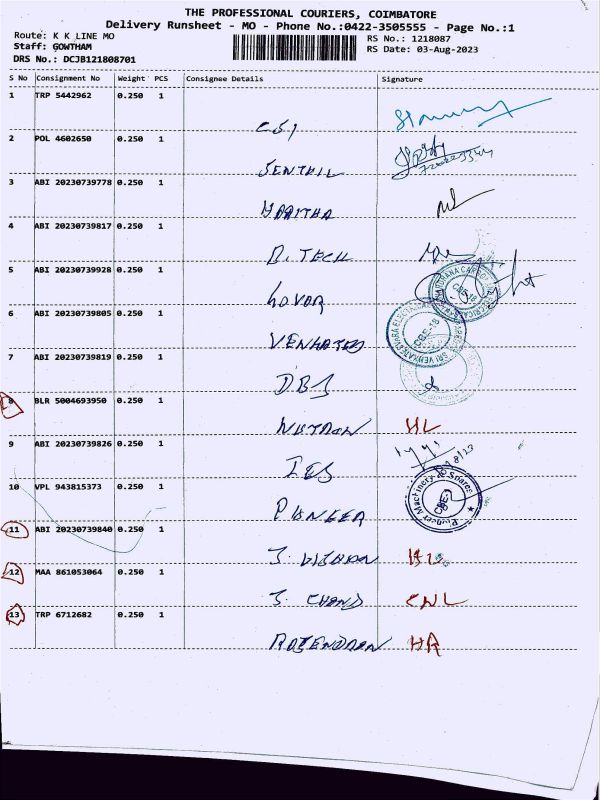 THE PROFESSIONAL COURIERS, COIMBATORE
Delivery Runsheet - MO - Phone No.:0422-3505555 - Page No.:1
Route: K K LINE MO
RS No.: 1218087
Staff: GOWTHAM
RS Date: 03-Aug-2023
DRS No.: DCJB121808701
S No Consignment No Weight PCS Consignee Details Signature
1 TRP 5442962 0.250 1
CSI
2 POL 4602650 0.250 1
SENTHIL
3 ABI 20230739778 0.250 1
HARITHA
4 ABI 20230739817 0.250 1
B. TECH
5 ABI 20230739928 0.250 1
6 ABI 20230739805 0.250 1
VENKATES
7 ABI 20230739819 0.250 1
DBS
8 BLR 5004693950 0.250 1
HL
9 ABI 20230739826 0.250 1
IES
10 VPL 943815373 0.250 1
PIONEER
Pioneer Machinery & Spares
CBE-1
11 ABI 20230739840 0.250 1
12 MAA 861053064 0.250 1
S. CHAND CNL
13 TRP 6712682 0.250 1
RAJENDRAN HA